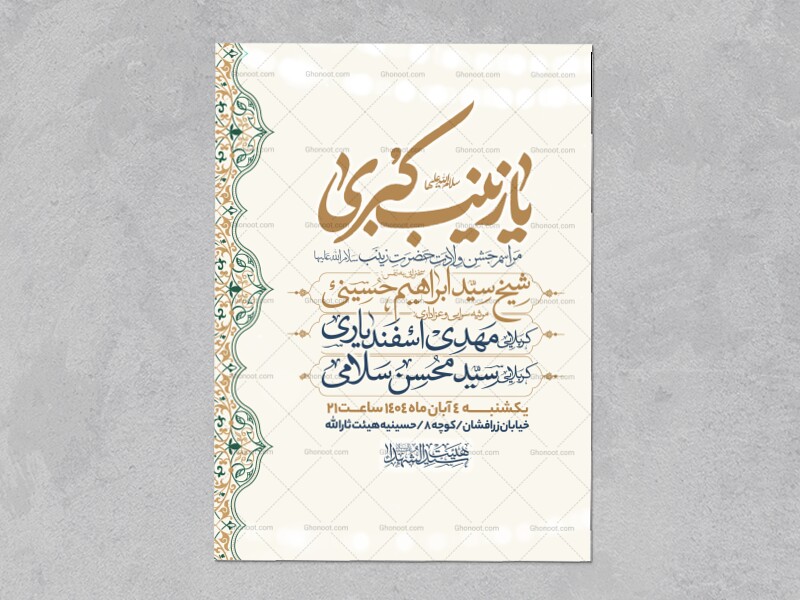 یا زینب کبری
سلام الله علیها
مراسم جشن ولادت حضرت زینب سلام الله علیها
سخنرانی به نفس
شیخ سید ابراهیم حسینی
مرثیه سرایی و عزاداری:
کربلایی مهدی اسفندیاری
کربلایی سید محسن سلامی
یکشنبه ۴ آبان ماه ۱۴۰۴ ساعت ۲۱
خیابان زرافشان / کوچه ۸ / حسینیه هیئت ثارالله
هیئت سیدالشهدا
Ghonoot.com